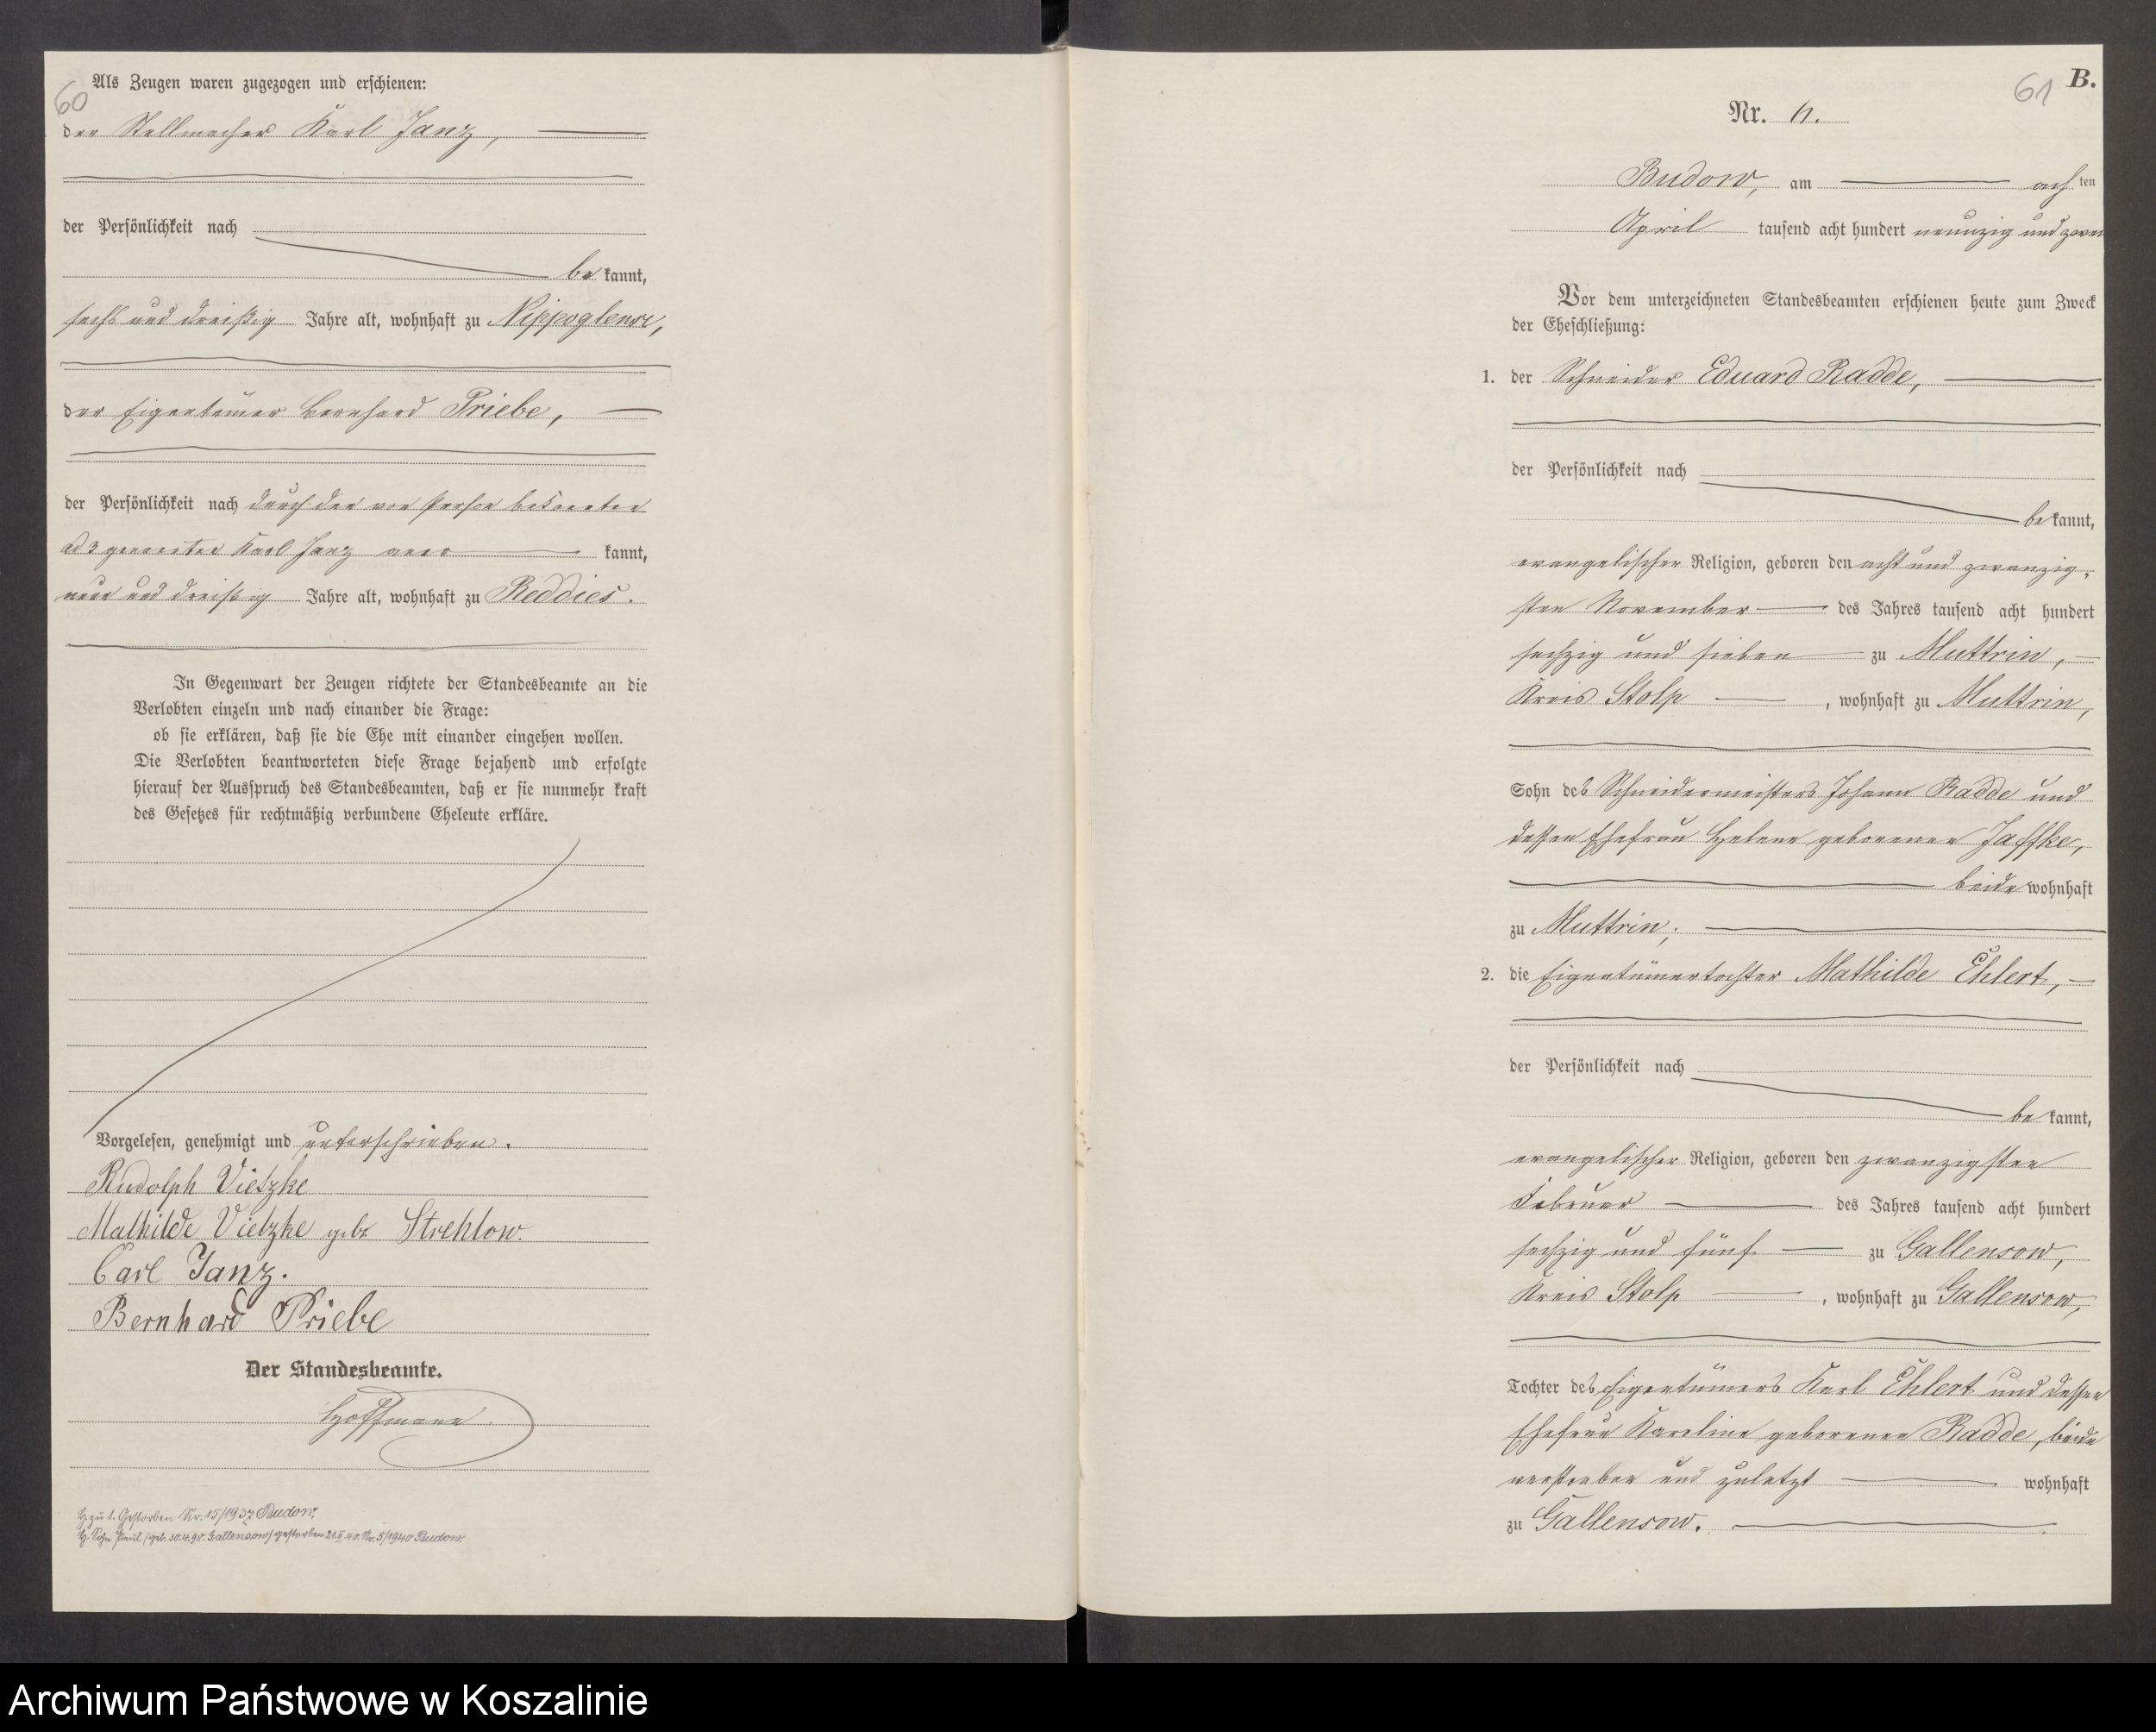 60
Als Zeugen waren zugezogen und erschienen:
der Stellmacher Karl Janz,
der Persönlichkeit nach
be kannt,
sechs und dreißig Jahre alt, wohnhaft zu Nippoglense,
der Eigentümer Bernhard Priebe,
der Persönlichkeit nach durch den von Person bekannten
ad 3 genannten Karl Janz aner kannt,
neun und dreißig Jahre alt, wohnhaft zu Reddies.
In Gegenwart der Zeugen richtete der Standesbeamte an die
Verlobten einzeln und nach einander die Frage:
ob sie erklären, daß sie die Ehe mit einander eingehen wollen.
Die Verlobten beantworteten diese Frage bejahend und erfolgte
hierauf der Ausspruch des Standesbeamten, daß er sie nunmehr kraft
des Gesetzes für rechtmäßig verbundene Eheleute erkläre.
Vorgelesen, genehmigt und unterschrieben.
Rudolph Vietzke
Mathilde Vietzke geb. Strehlow.
Carl Janz.
Bernhard Priebe
Der Standesbeamte.
Hoffmann.
H. zu 1. Gestorben Nr. 15/1937 Budow.
H. Sohn Paul (geb. 30.4.95. Gallensow) gestorben 21.II.40. Nr. 5/1940 Budow.
61 B.
Nr. 6.
Budow, am ach ten
April tausend acht hundert neunzig und zwei
Vor dem unterzeichneten Standesbeamten erschienen heute zum Zweck
der Eheschließung:
1. der Schneider Eduard Radde,
der Persönlichkeit nach
be kannt,
evangelischer Religion, geboren den acht und zwanzig-
sten November des Jahres tausend acht hundert
sechzig und sieben zu Muttrin,
Kreis Stolp, wohnhaft zu Muttrin,
Sohn des Schneidermeisters Johann Radde und
dessen Ehefrau Helene geborenen Jaffke,
beide wohnhaft
zu Muttrin;
2. die Eigentümertochter Mathilde Ehlert,
der Persönlichkeit nach
be kannt,
evangelischer Religion, geboren den zwanzigsten
Februar des Jahres tausend acht hundert
sechzig und fünf zu Gallensow,
Kreis Stolp, wohnhaft zu Gallensow,
Tochter des Eigentümers Karl Ehlert und dessen
Ehefrau Karoline geborenen Radde, beide
verstorben und zuletzt wohnhaft
zu Gallensow.
Archiwum Państwowe w Koszalinie